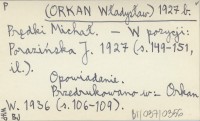 P (ORKAN Władysław) 1927 b.
Prędki Michał. – W pozycji:
Porazińska J. 1927 (s. 149-151,
il.).
Opowiadanie.
Przedrukowano w: Orkan
W. 1936 (s. 106-109).